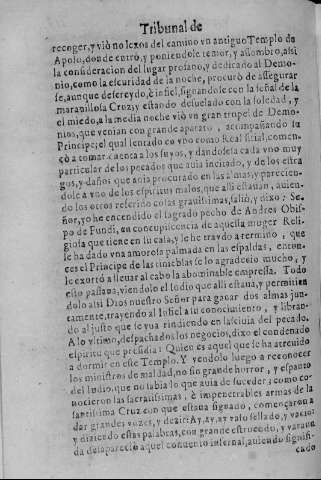 Tribunal de
recoger, y viò no lexos del camino vn antiguo Templo de
Apolo, donde entrò, y poniendole temor, y assombro, assi
la consideracion del lugar profano, y dedicado al Demo-
nio, como la escuridad de la noche, procurò de assegurar
se, aunque descreydo, è infiel, signandose con la señal de la
marauillosa Cruz; y estando desuelado con la soledad, y
el miedo, a la media noche viò vn gran tropel de Demo-
nios, que venian con grande aparato, acompañando su
Principe; el qual sentado en vno como Real sitial, comen-
çò a tomar cuenta a los suyos, y dandosela cada vno muy
particular de los pecados que auia incitado, y de los estra-
gos, y daños que auia procurado en las almas, y parecien-
dole a vno de los espiritus malos, que alli estauan, auien-
do los otros referido cosas grauissimas, saliò, y dixo: Se-
ñor, yo he encendido el sagrado pecho de Andres Obis-
po de Fundi, en concupiscencia de aquella muger Reli-
giosa que tiene en su casa, y le he traydo a termino, que
le ha dado vna amorosa palmada en las espaldas, enton-
ces el Principe de las tinieblas se lo agradeciò mucho, y
le exortò a lleuar al cabo la abominable empressa. Todo
esto passaua, viendolo el Iudio que alli estaua, y permitien
dolo assi Dios nuestro Señor para ganar dos almas jun-
tamente, trayendo al Infiel a su conocimiento, y libran-
do al justo que se yua rindiendo en la sciuia del pecado.
A lo vltimo, despachados los negocios, dixo el condenado
espiritu que presidia: Quien es aquel que se ha atreuido
a dormir en este Templo. Y yendolo luego a reconocer
los ministros de maldad, no sin grande horror, y espanto
del Iudio, que no sabia lo que auia de suceder; como co-
nocieron las sacratissimas, è impenetrables armas de la
santissima Cruz con que estaua signado, començaron a
dar grandes vozes, y dezir: Ay, ay, ay vaso sellado, y vacio:
y diziendo estas palabras, con grande estruendo, y
da desapareciò aquel conuento infernal, auiendo signifi-
cado